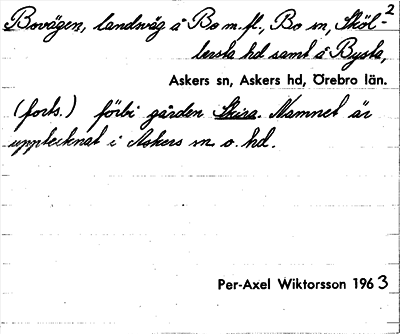 2
Bovägen, landsväg å Bo m.fl., Bo sn, Sköl-
lersta hd samt å Bysta,
Askers sn, Askers hd, Örebro län.
(forts.) förbi gården Skira. Namnet är
upptecknat i Askers sn. o. hd.
Per-Axel Wiktorsson 1963